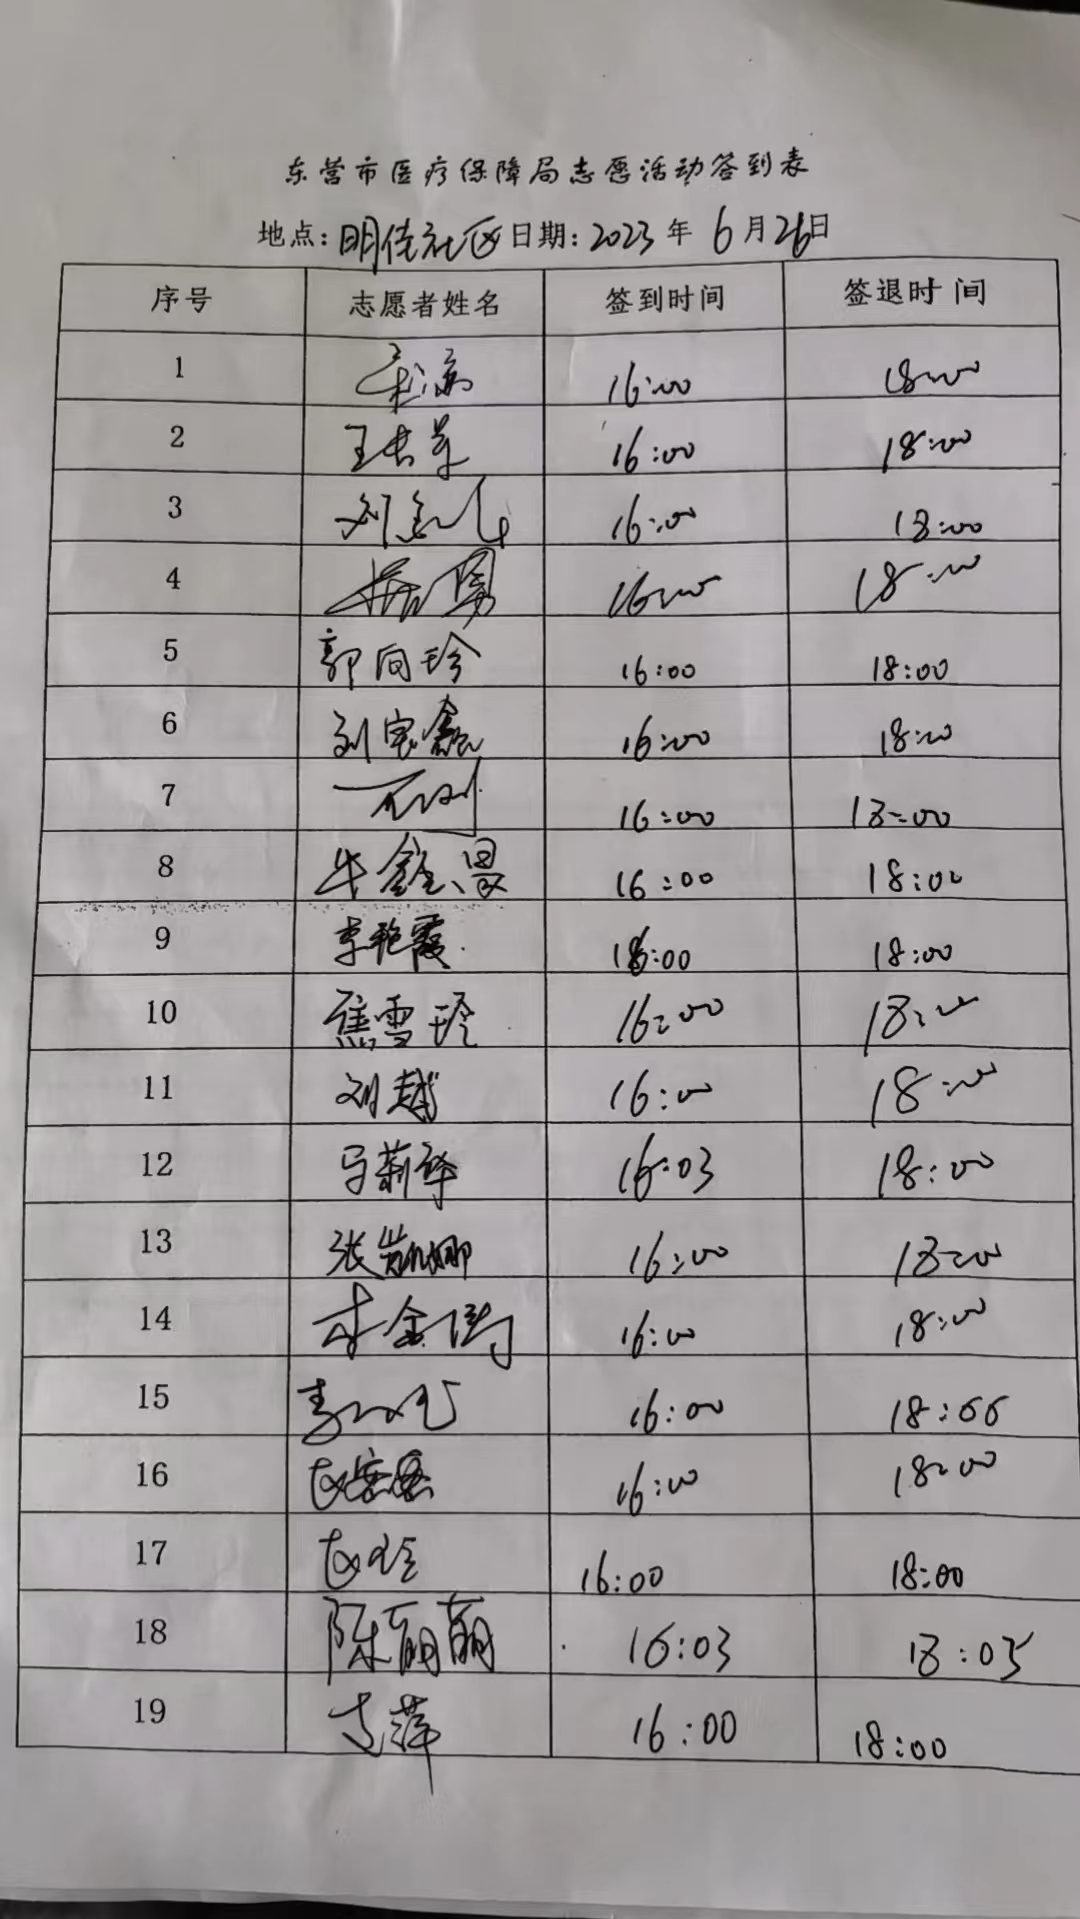 东营市医疗保障局志愿活动签到表
地点:明佳社区日期:2023年6月26日
序号 志愿者姓名 签到时间 签退时间
1 16:00 18:00
2 王志军 16:00 18:00
3 16:00 18:00
4 16:00 18:00
5 郭向珍 16:00 18:00
6 刘宝鑫 16:00 18:00
7 16:00 18:00
8 牛鑫 16:00 18:00
9 李艳霞 16:00 18:00
10 焦雪玲 16:00 18:00
11 刘越 16:00 18:00
12 马莉华 16:03 18:00
13 张凯娜 16:00 18:00
14 李金 16:00 18:00
15 16:00 18:00
16 赵 16:00 18:00
17 赵玲 16:00 18:00
18 陈丽萌 16:03 18:03
19 李萍 16:00 18:00